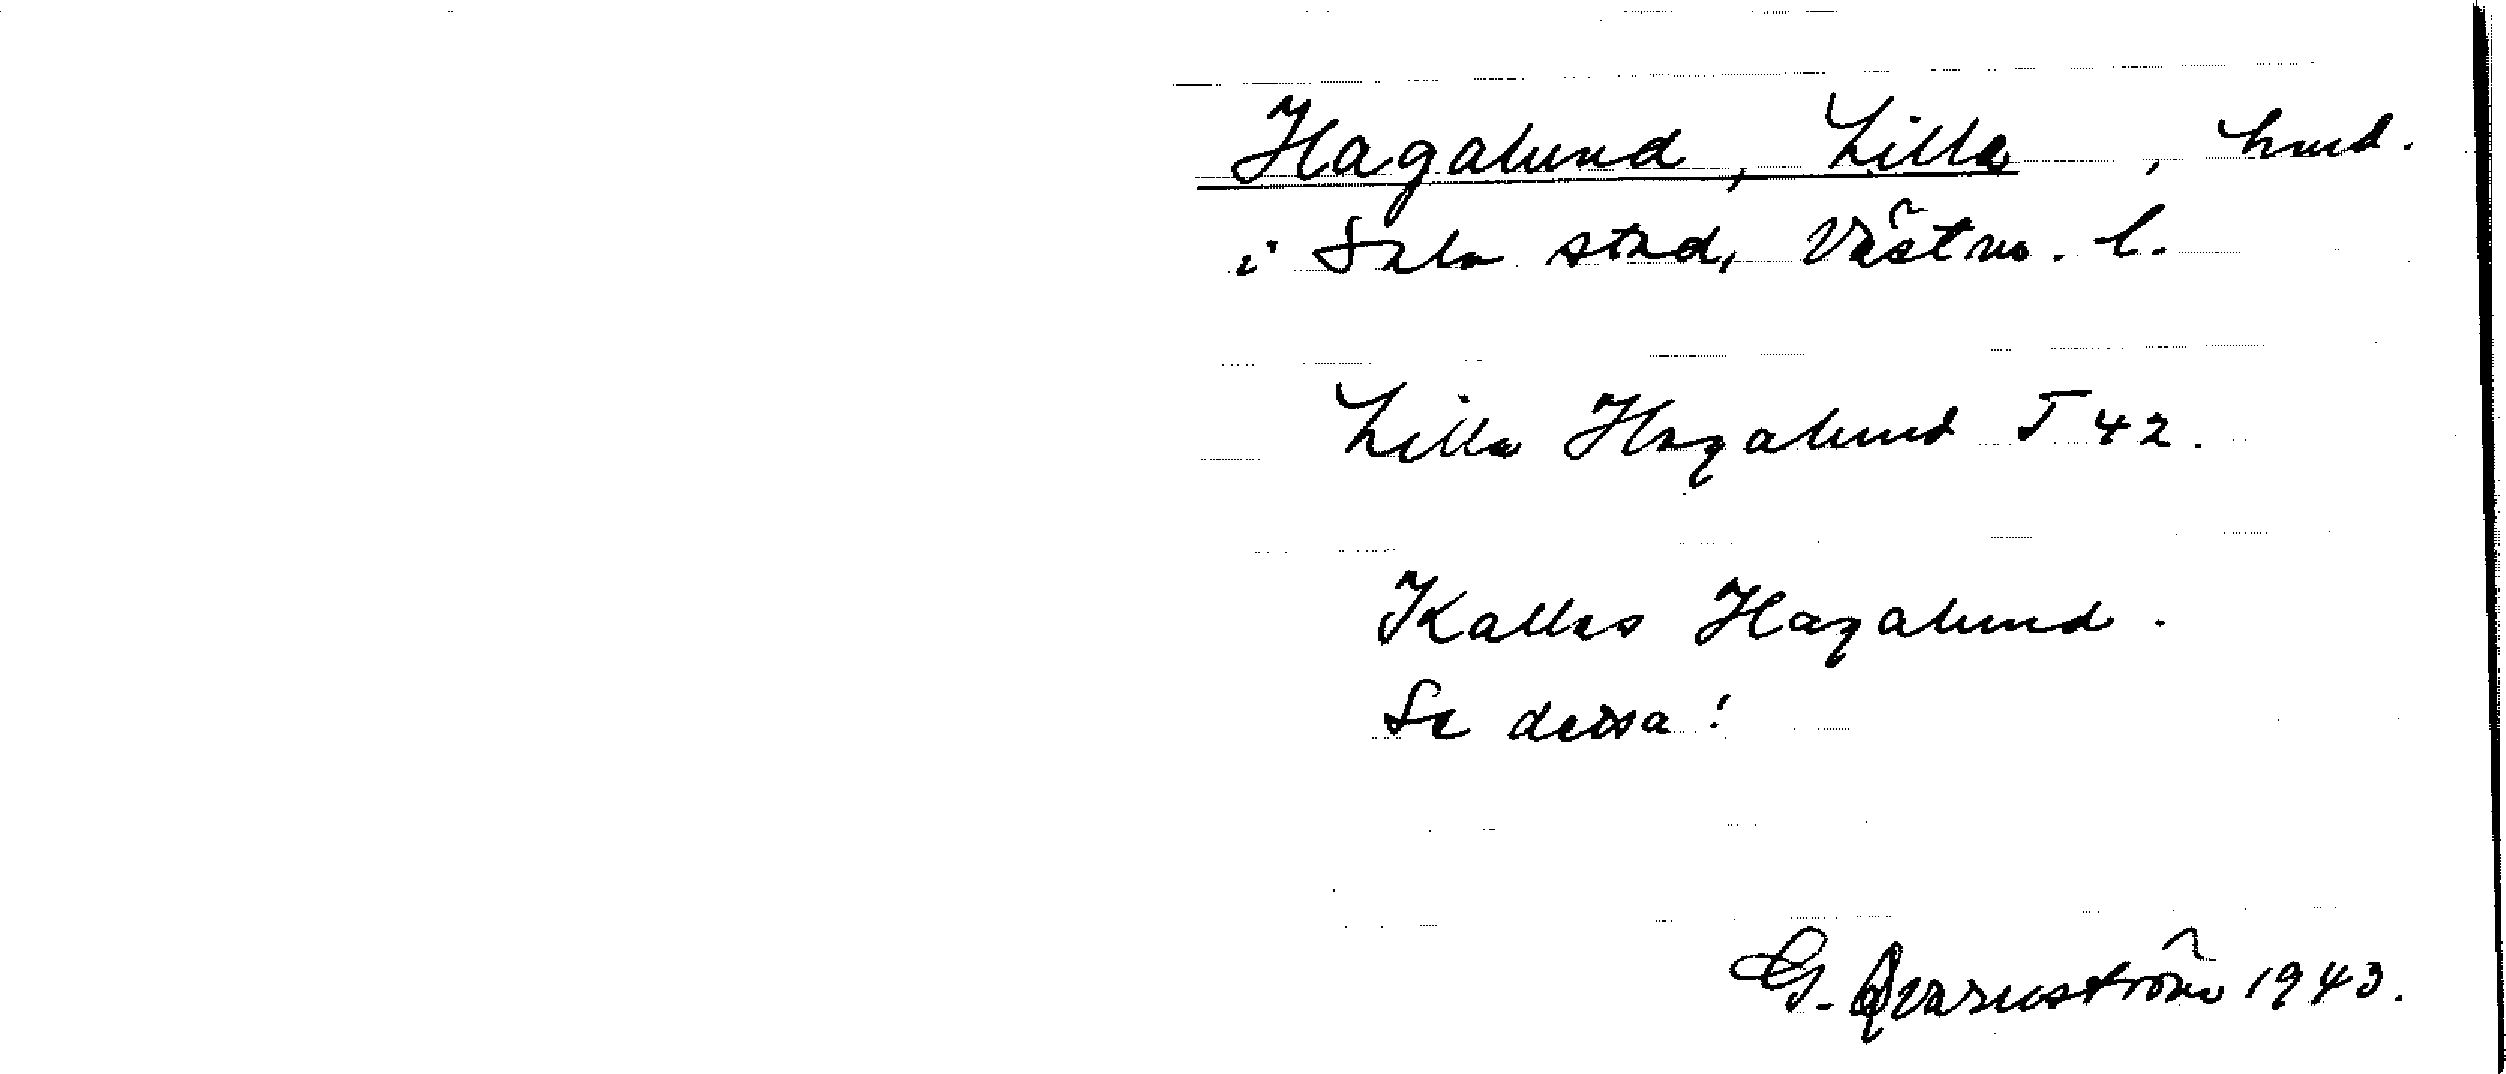 Hagalund, Lilla, hmd.
i Sala stad, Västm. l.
Lilla Hagalund T 42.
Kallas Hagalund.
Se dessa!
G. Qvarnström 1943.